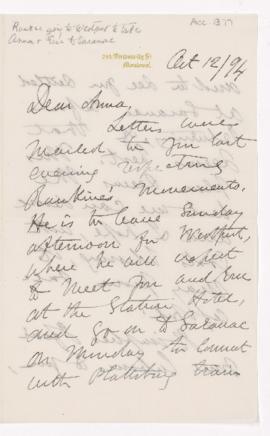 Rankine going to Westport to take
Anna & Eric to Saranac
Acc. 1377
Montreal.
Oct 12/94
Dear Anna,
Letters were
mailed to you last
evening respecting
Rankine's movements.
He is to leave Sunday
afternoon for Westport,
where he will expect
to meet you and Eric
at the Station Hotel,
and go on to Saranac
on Monday to connect
with Plattsburg train